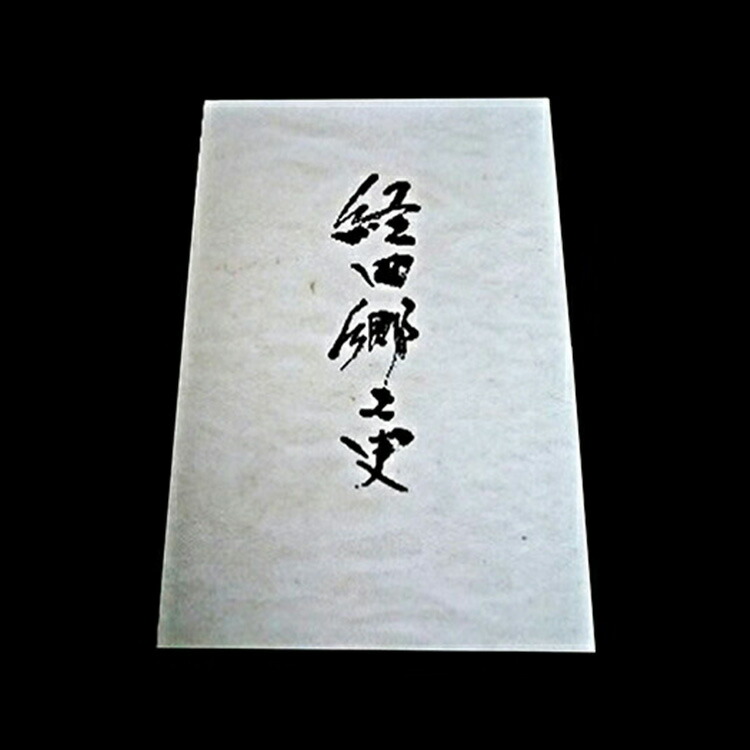 経田郷土史